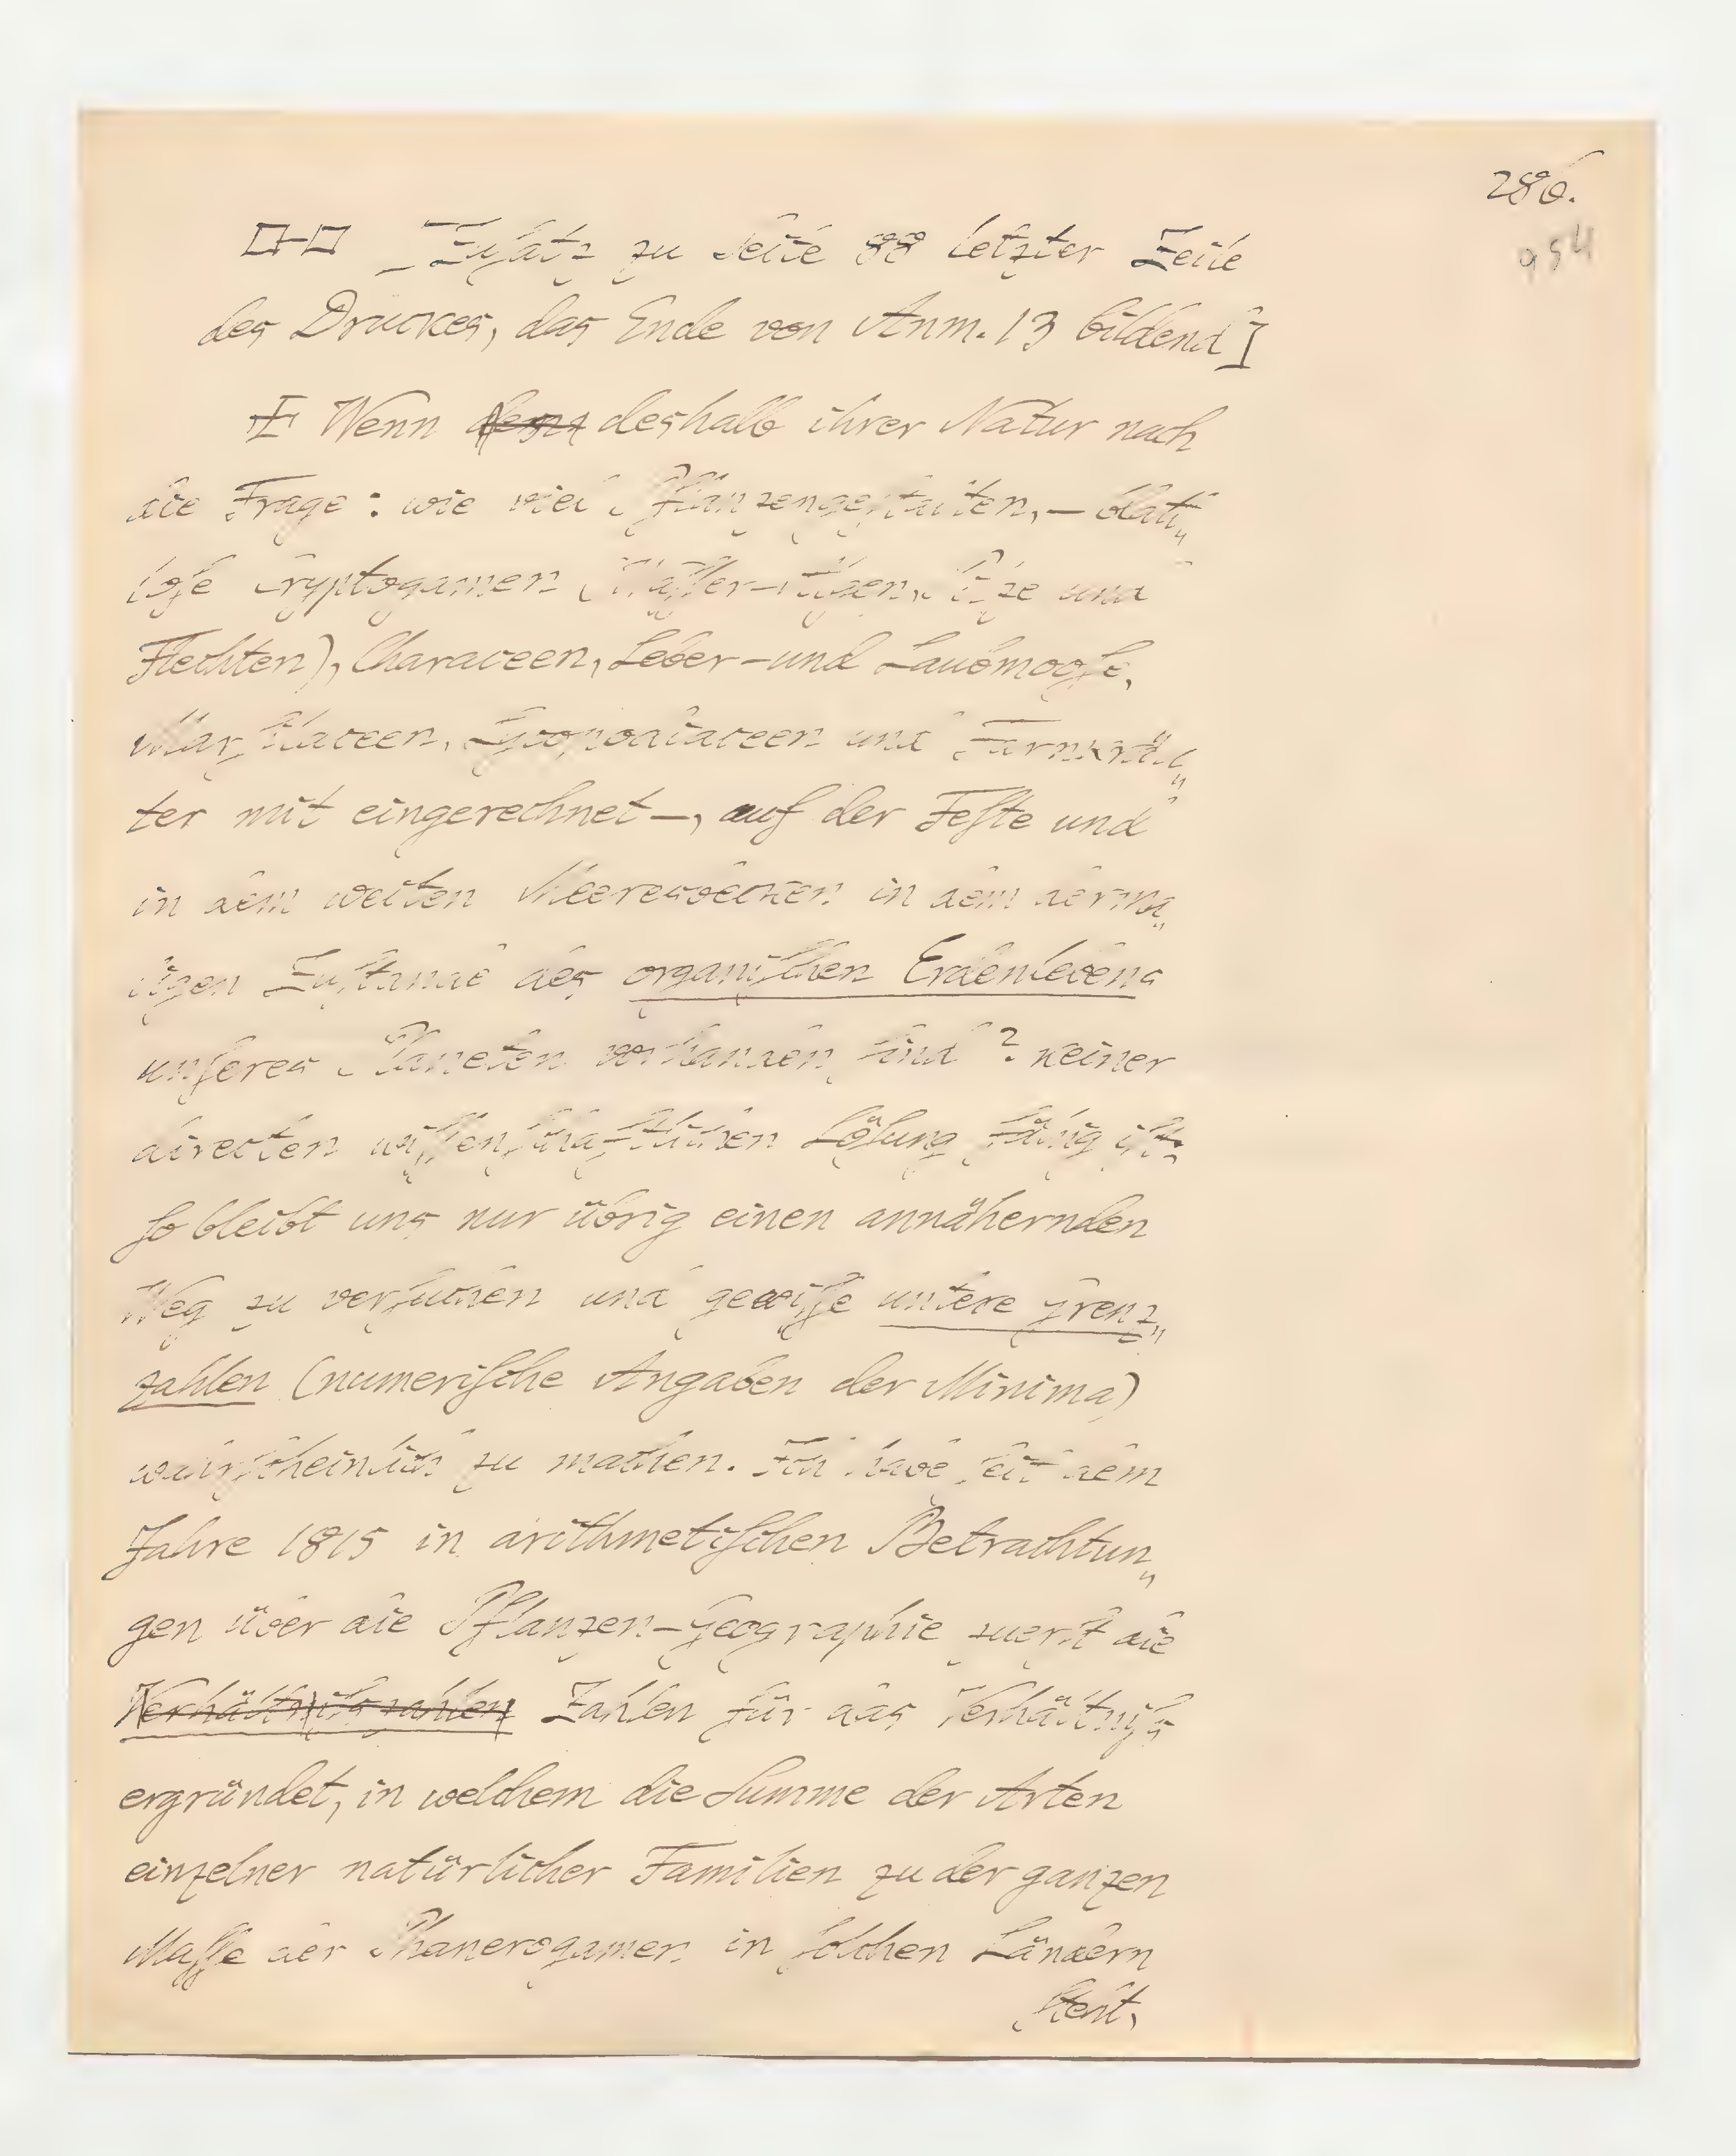 286.
954
[Zusatz zu Seite 88 letzter Zeile
des Druckes, das Ende von Anm. 13 bildend]
Wenn denn deshalb ihrer Natur nach
die Frage: wie viel Pflanzengestalten, – blatt„
lose Cryptogamen (Wasser-Algen, Pilze und
Flechten), Characeen, Leber- und Laubmoose,
Marsilaceen, Lycopodiaceen und Farrnkräu„
ter mit eingerechnet –, auf der Feste und
in dem weiten Meeresbecken in dem derma„
ligen Zustande des organischen Erdenlebens
unseres Planeten vorhanden sind? keiner
directen wissenschaftlichen Lösung fähig ist;
so bleibt uns nur übrig einen annähernden
Weg zu versuchen und gewisse untere Grenz„
zahlen (numerische Angaben der Minima)
wahrscheinlich zu machen. Ich habe seit dem
Jahre 1815 in arithmetischen Betrachtun„
gen über die Pflanzen-Geographie zuerst die
Verhältnißzahlen Zahlen für das Verhältniß
ergründet, in welchem die Summe der Arten
einzelner natürlicher Familien zu der ganzen
Masse der Phanerogamen in solchen Ländern
steht,